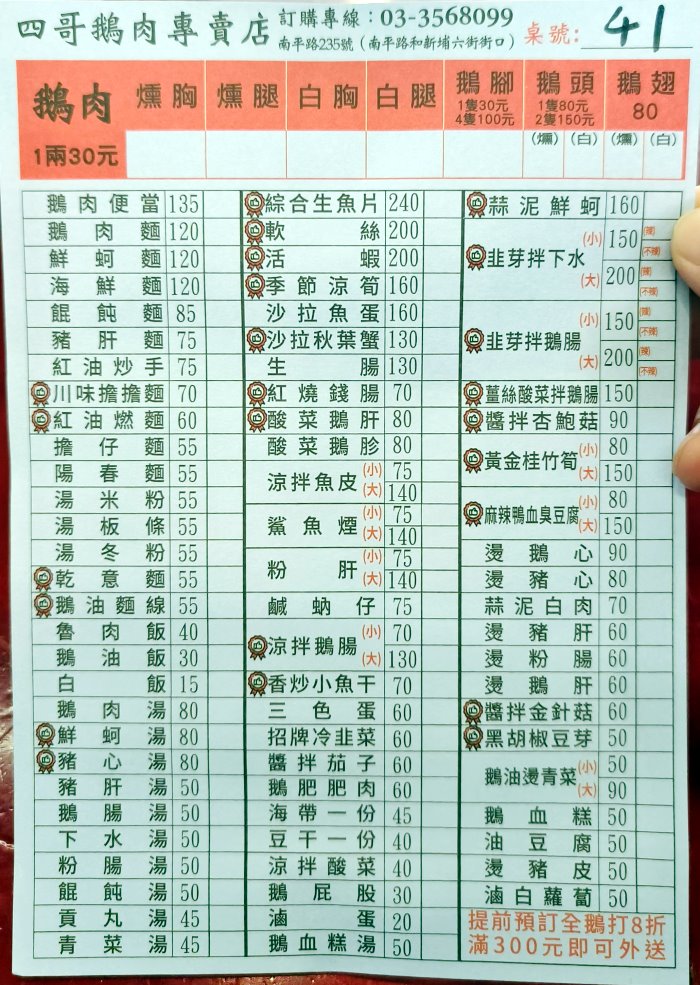 四哥鵝肉專賣店 訂購專線：03-3568099
南平路235號（南平路和新埔六街街口） 桌號: 41
鵝肉 1兩30元
燻胸
燻腿
白胸
白腿
鵝腳 1隻30元 4隻100元
鵝頭 1隻80元 2隻150元 (燻) (白)
鵝翅 80 (燻) (白)
鵝肉便當 135
鵝肉麵 120
鮮蚵麵 120
海鮮麵 120
餛飩麵 85
豬肝麵 75
紅油炒手 75
川味擔擔麵 70
紅油燃麵 60
擔仔麵 55
陽春麵 55
湯米粉 55
湯板條 55
湯冬粉 55
乾意麵 55
鵝油麵線 55
魯肉飯 40
鵝油飯 30
白飯 15
鵝肉湯 80
鮮蚵湯 80
豬心湯 80
豬肝湯 50
鵝腸湯 50
下水湯 50
粉腸湯 50
餛飩湯 50
貢丸湯 45
青菜湯 45
綜合生魚片 240
軟絲 200
活蝦 200
季節涼筍 160
沙拉魚蛋 160
沙拉秋葉蟹 130
生腸 130
紅燒錢腸 70
酸菜鵝肝 80
酸菜鵝胗 80
涼拌魚皮 (小) 75
(大) 140
鯊魚煙 (小) 75
(大) 140
粉肝 (小) 75
(大) 140
鹹蚋仔 75
涼拌鵝腸 (小) 70
(大) 130
香炒小魚干 70
三色蛋 60
招牌冷韭菜 60
醬拌茄子 60
鵝肥肥肉 60
海帶一份 45
豆干一份 40
涼拌酸菜 40
鵝屁股 30
滷蛋 20
鵝血糕湯 50
蒜泥鮮蚵 160
韭芽拌下水 (小) 150 (辣) (不辣)
(大) 200 (辣) (不辣)
韭芽拌鵝腸 (小) 150 (辣) (不辣)
(大) 200 (辣) (不辣)
薑絲酸菜拌鵝腸 150
醬拌杏鮑菇 90
黃金桂竹筍 (小) 80
(大) 150
麻辣鴨血臭豆腐 (小) 80
(大) 150
燙鵝心 90
燙豬心 80
蒜泥白肉 70
燙豬肝 60
燙粉腸 60
燙鵝肝 60
醬拌金針菇 60
黑胡椒豆芽 50
鵝油燙青菜 (小) 50
(大) 90
鵝血糕 50
油豆腐 50
燙豬皮 50
滷白蘿蔔 50
提前預訂全鵝打8折
滿300元即可外送